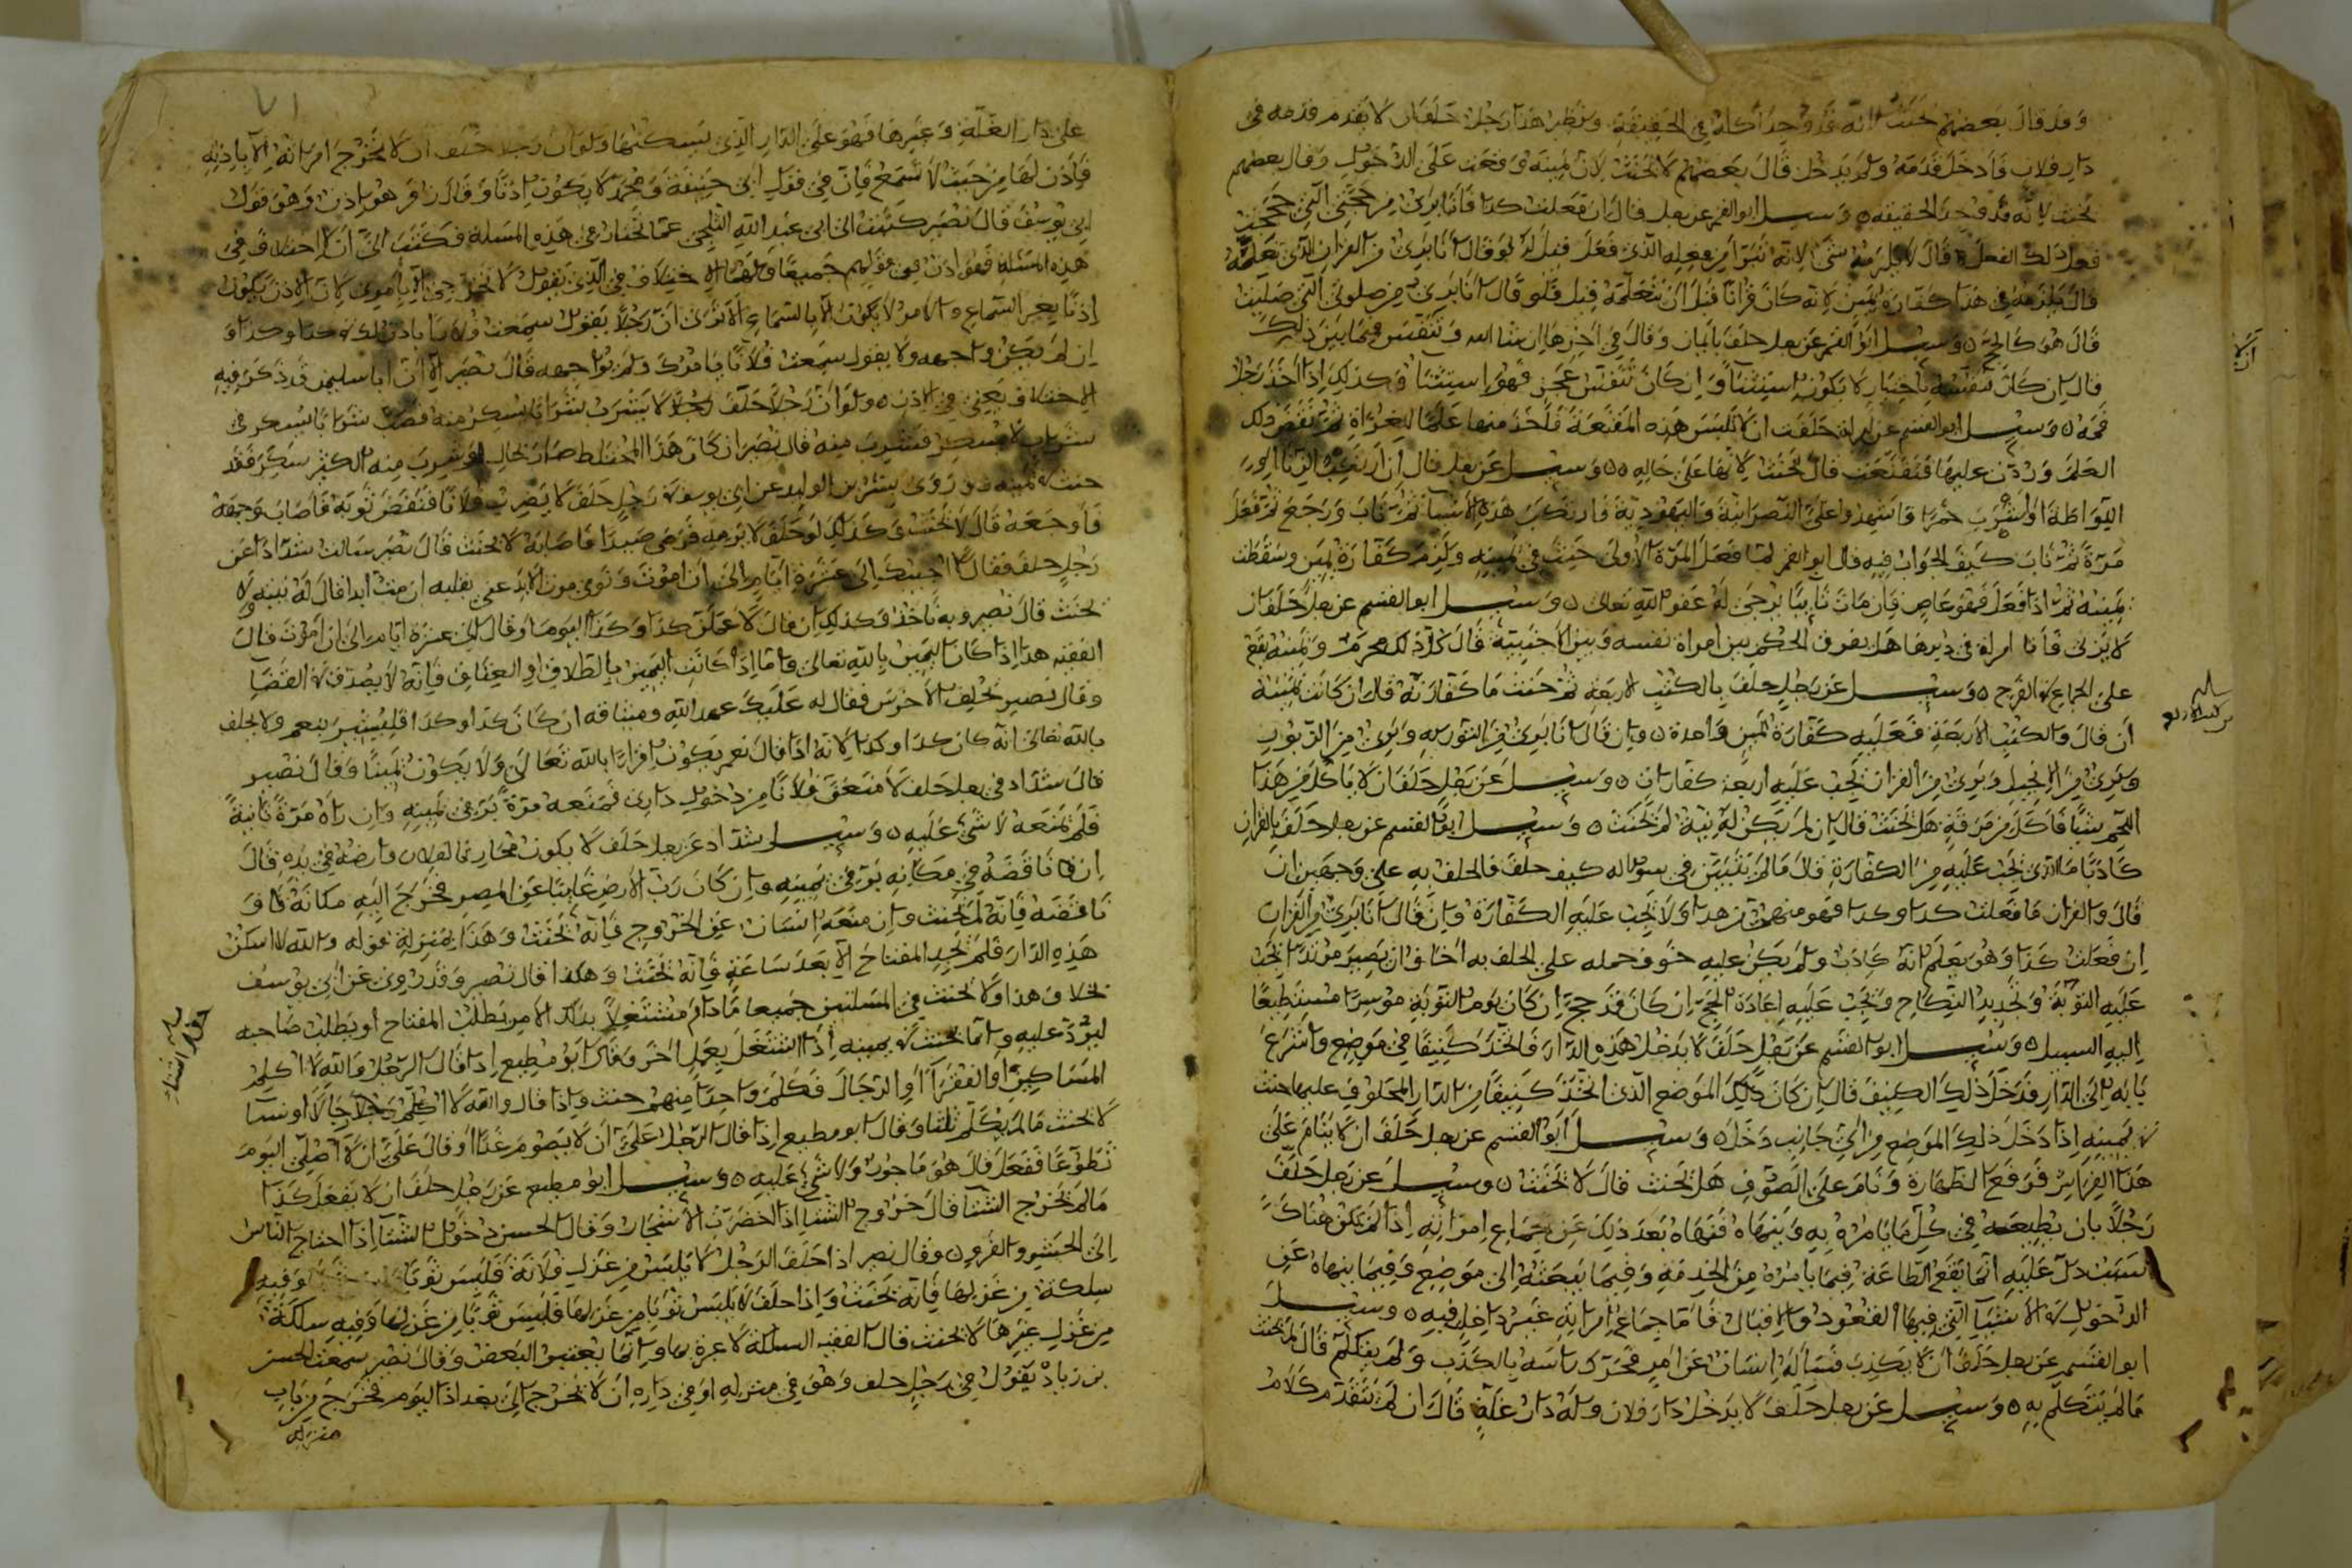 وقد قال بعضهم يحنث لانه قد وجد اكله في الحقيقة ونظير هذا رجل حلف ان لا يقدم قدمه في
دار فلان فادخل قدمه ولم يدخل قال بعضهم لا يحنث لان يمينه وقعت على الدخول وقال بعضهم
يحنث لانه قد وجد الحقيقه وسئل ابو القسم عن رجل قال ان فعلت كذا فانا بريء من حجتي التي حججت
ففعل ذلك الفعل قال لا يلزمه شيء لانه تبرأ من فعله الذي فعل قيل له لو قال انا بريء من القران الذي تعلمته
قال يلزمه في هذا كفارة يمين لانه كان قرانا قبل ان يتعلمه قيل فلو قال انا بريء من صلوتي التي صليت
قال هو كالحج وسئل ابو القسم عن رجل حلف بايمان وقال في اخرها ان شا الله وتنفس فيما بين ذلك
قال ان كان تنفسه باختيار لا يكون استثنا وان كان تنفس عجز فهو استثنا وكذلك اذا اخذ رجل
فمه وسئل ابو القسم عن امراة حلفت ان لا تلبس هذه المقنعة فاخذ منها علما للغزاة ثم نقض ذلك
العلم وردت عليها فتقنعت قال يحنث لانها على حاله وسئل عن رجل قال ان اريد الزنا او
اللواطة او اشرب خمرا فاشهدوا على النصرانية واليهودية فارتكب هذه الاشيا ثم تاب ورجع ثم فعل
مرة ثم تاب كيف الجواب فيه قال ابو القسم لما فعل المرة الاولى حنث في يمينه ولزمه كفارة يمين وسقطت
يمينه ثم اذا فعل فهو عاص فان مات تايبا يرجى له عفو الله تعالى وسئل ابو القسم عن رجل حلف ان
لا يزني فاتا امراة في دبرها هل يفرق الحكم بين امراة نفسه وبين الاجنبية قال كل ذلك محرم ويمينه يقع
على الجماع في الفرج وسئل عن رجل حلف بالكتب الاربعة ثم حنث ما كفارته قال ان كانت يمينه
ان قال والكتب الاربعة فعليه كفارة يمين واحدة وان قال انا بريء من التورية وبريء من الزبور
وبريء من الانجيل وبريء من القران يجب عليه اربعة كفارات وسئل عن رجل حلف ان لا ياكل من هذا
اللحم شيئا فاكل من مرقه هل يحنث قال ان لم يكن له نية لم يحنث وسئل ابو القسم عن رجل حلف بالقران
كاذبا ما الذي يجب عليه من الكفارة قال ما لم يتبين في سؤاله كيف حلف فالحلف به على وجهين ان
قال والقران ما فعلت كذا وكذا فهو منهي من هذا ولا يجب عليه الكفارة وان قال انا بريء من القران
ان فعلت كذا وهو يعلم انه كاذب ولم يكن عليه خوف حمله على الحلف به اخاف ان يصير مرتدا يجب
عليه التوبة وتجديد النكاح ويجب عليه اعادة الحج ان كان قد حج ان كان يوم التوبة موسرا مستطيعا
اليه السبيل وسئل ابو القسم عن رجل حلف لا يدخل هذه الدار فاتخذ كنيفا في موضع واشرع
بابه الى الدار فدخل ذلك الكنيف قال ان كان ذلك الموضع الذي اتخذ كنيفا من الدار المحلوف عليها حنث
في يمينه اذا دخل ذلك الموضع من اي جانب دخل وسئل ابو القسم عن رجل حلف ان لا ينام على
هذا الفراش فرفع الظهارة ونام على الصوف هل يحنث قال لا يحنث وسئل عن رجل حلف
رجلا بان يطيعه في كل ما يامره به وينهاه فنهاه بعد ذلك عن جماع امراته اذا لم يكن هناك
سبب دل عليه انما يقع الطاعة فيما يامره من الخدمة وفيما يبعثه الى موضع وفيما ينهاه عن
الدخول في الاشيا التي فيها القعود والاقبال فاما جماع امراته غير داخل فيه وسئل
ابو القسم عن رجل حلف ان لا يكذب فساله انسان عن امر فحرك راسه بالكذب ولم يتكلم قال لم يحنث
ما لم يتكلم به وسئل عن رجل حلف لا يدخل دار فلان وله دار غلة قال ان لم يتقدم كلام
على دار الغلة وغيرها فهو على الدار الذي يسكنها ولو ان رجلا حلف ان لا تخرج امراته الا باذنه
فاذن لها من حيث لا تسمع فان في قول ابي حنيفة ومحمد لا يكون اذنا وقال زفر هو اذن وهو قول
ابي يوسف قال نصير كتبت الى ابي عبد الله الثلجي عما يختار في هذه المسلة فكتب الي ان لا اختلاف في
هذه المسئلة فهو اذن في قولهم جميعا وانما الاختلاف في الذي يقول لا تخرجي الا بامري لان الاذن يكون
اذنا بغير السماع والامر لا يكون الا بالسماع الا ترى ان رجلا يقول سمعت فلانا ياذن لك في كذا وكذا و
ان لم يكن واجهه ولا يقول سمعت فلانا يامرك ولم يواجهه قال نصير الا ان ابا سليمن قد ذكر فيه
الاختلاف يعني في الاذن ولو ان رجلا حلف رجلا لا يشرب شرابا يسكر منه فصب شرابا يسكر في
شراب لا يسكر فشرب منه قال نصير ان كان هذا المختلط صار بحال لو شرب منه الكثير سكر فقد
حنث في يمينه وروى بشر بن الوليد عن ابي يوسف في رجل حلف لا يضرب فلانا فنفض ثوبه فاصاب وجهه
فاوجعه قال لا يحنث وكذلك لو حلف لا يرميه فرمى صيدا فاصابه لا يحنث قال نصير سالت شدادا عن
رجل حلف فقال لا اجيبك الى عشرة ايام الى ان اموت ونوى موت الابد عنى بقلبه ان مت ابدا قال له نيته ولا
يحنث قال نصير وبه ناخذ وكذلك ان قال لا عملن كذا وكذا اليوم او قال الى عشرة ايام الى ان اموت قال
الفقيه هذا اذا كان اليمين بالله تعالى واما اذا كانت اليمين بالطلاق او العتاق فانه لا يصدق في القضا
وقال نصير تحليف الاخرس فقال له عليك عهد الله وميثاقه ان كان كذا وكذا فليشير بنعم ولا يحلف
بالله تعالى انه كان كذا وكذا لانه اذا قال نعم يكون اقرارا بالله تعالى ولا يكون يمينا وقال نصير
قال شداد في رجل حلف لامنعن فلانا من دخول داري فمنعه مرة بر في يمينه وان راه مرة ثانية
فلم يمنعه لا شيء عليه وسئل شداد عن رجل حلف لا يكون محاربا لفلان وارضه في يده قال
ان ناقضه في مكانه بر في يمينه وان كان رب الارض غايبا عن المصر فخرج اليه مكانه فا و
ناقضه فانه لم يحنث وان منعه انسان عن الخروج فانه يحنث وهذا بمنزلة قوله والله لا اسكن
هذه الدار فلم يجد المفتاح الا بعد ساعة فانه يحنث وهكذا قال نصير وقد روي عن ابي يوسف
بخلاف هذا ولا يحنث في المسلتين جميعا ما دام مشتغلا بذلك الامر بطلب المفتاح او بطلب صاحبه
ليرد عليه وانما يحنث في يمينه اذا اشتغل بعمل اخر وقال ابو مطيع اذا قال الرجل والله لا اكلم
المساكين او الفقرا او الرجال فكلم واحدا منهم حنث واذا قال والله لا اكلم رجالا او نسا
لا يحنث ما لم يكلم ثلثا وقال ابو مطيع اذا قال الرجل علي ان لا يصوم غدا او قال علي ان لا اصلي اليوم
تطوعا ففعل قال هو ماجور ولا شيء عليه وسئل ابو مطيع عن رجل حلف ان لا يفعل كذا
ما لم يخرج الشتا قال خروج الشتا اذا اخضرت الاشجار وقال الحسن دخول الشتا اذا احتاج الناس
الى الحشو والفرو وقال نصير اذا حلف الرجل لا يلبس من غزل فلانة فلبس ثوبا وفيه
سلكة من غزلها فانه يحنث واذا حلف لا يلبس ثوبا من غزلها فلبس ثوبا من غزلها وفيه سلكة
من غزل غيرها لا يحنث قال الفقيه السلكة لا عبرة بها وانما يعتبر البعض وقال نصير سمعت الحسن
بن زياد يقول في رجل حلف وهو في منزله او في داره ان لا يخرج الى بغداد اليوم فخرج من باب
منزله